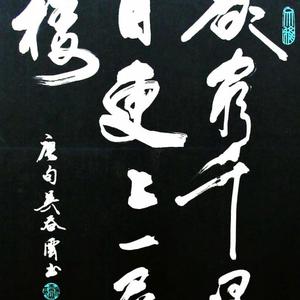 欲穷千里
目更上一层
楼
唐句吴春云书